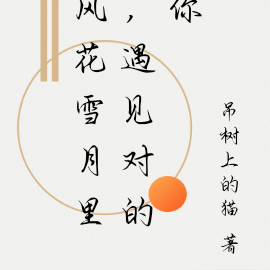 风花雪月里
，遇见对的
你
吊树上的猫 著